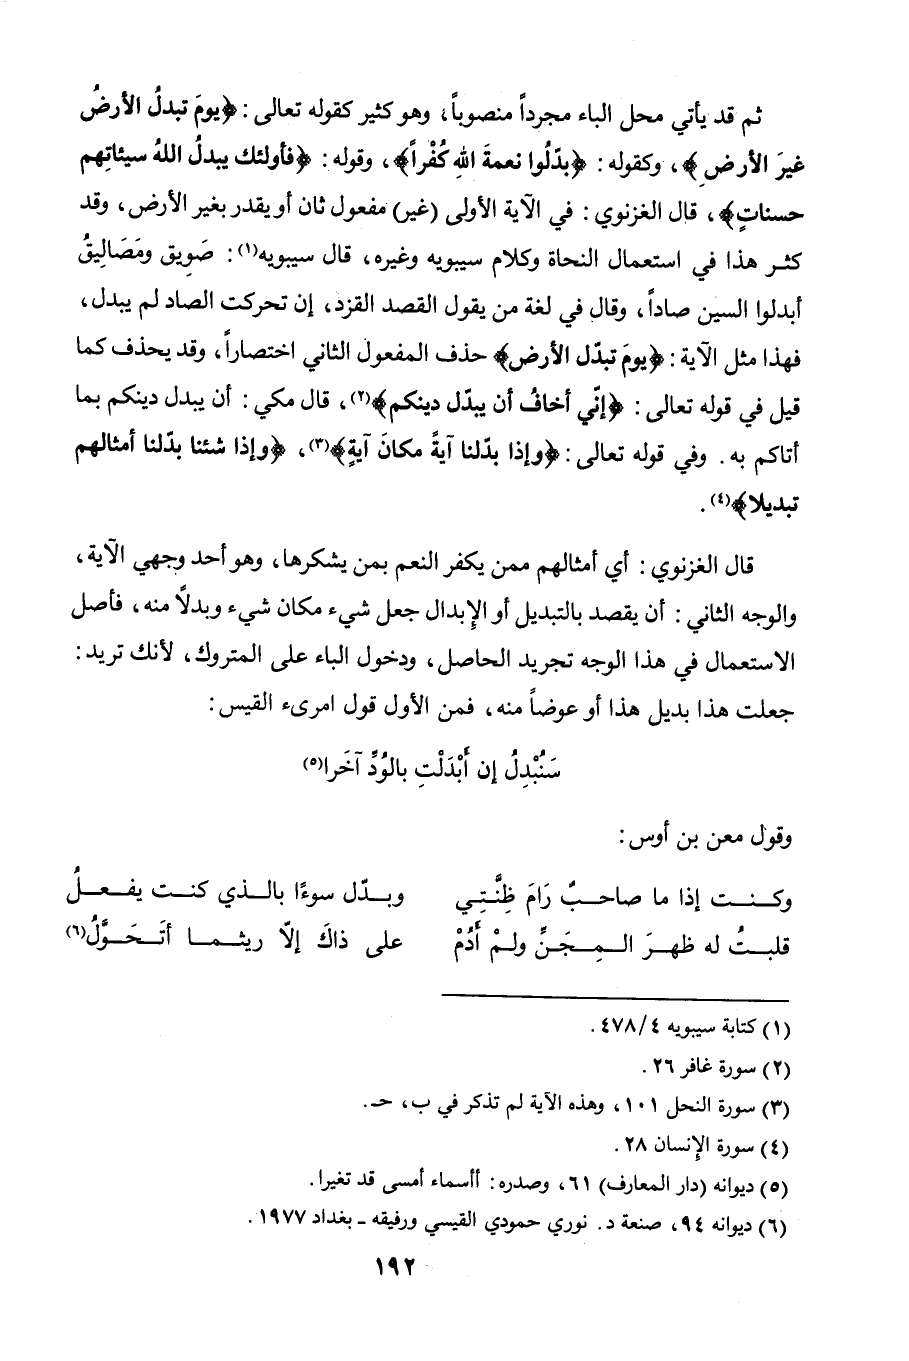 ثم قد يأتي محل الباء مجرداً منصوباً، وهو كثير كقوله تعالى: ﴿يومَ تبدلُ الأرضُ
غيرَ الأرضِ﴾، وكقوله: ﴿بدّلُوا نعمةَ اللهِ كُفْراً﴾، وقوله: ﴿فأولئك يبدلُ اللهُ سيئاتِهم
حسناتٍ﴾، قال الغزنوي: في الآية الأولى (غير) مفعول ثان أو يقدر بغير الأرض، وقد
كثر هذا في استعمال النحاة وكلام سيبويه وغيره، قال سيبويه(١): صَوِيق ومَصَالِيقُ
أبدلوا السين صاداً، وقال في لغة من يقول القصد القزد، إن تحركت الصاد لم يبدل،
فهذا مثل الآية: ﴿يومَ تبدّل الأرض﴾ حذف المفعول الثاني اختصاراً، وقد يحذف كما
قيل في قوله تعالى: ﴿إنّي أخافُ أن يبدّل دينكم﴾(٢)، قال مكي: أن يبدل دينكم بما
أتاكم به. وفي قوله تعالى: ﴿وإذا بدّلنا آيةً مكانَ آيةٍ﴾(٣)، ﴿وإذا شئنا بدّلنا أمثالهم
تبديلا﴾(٤).
قال الغزنوي: أي أمثالهم ممن يكفر النعم بمن يشكرها، وهو أحد وجهي الآية،
والوجه الثاني: أن يقصد بالتبديل أو الإبدال جعل شيء مكان شيء وبدلاً منه، فأصل
الاستعمال في هذا الوجه تجريد الحاصل، ودخول الباء على المتروك، لأنك تريد:
جعلت هذا بديل هذا أو عوضاً منه، فمن الأول قول امرىء القيس:
سَنُبْدِلُ إن أَبْدَلْتِ بالوُدِّ آخَرا(٥)
وقول معن بن أوس:
وكنت إذا ما صاحبٌ رَامَ ظِنَّتِي وبدّل سوءًا بالذي كنت يفعلُ
قلبتُ له ظهرَ المِجَنِّ ولمْ أَدُمْ على ذاكَ إلاّ ريثما أتَحَوَّلُ(٦)
(١) كتابة سيبويه ٤/ ٤٧٨.
(٢) سورة غافر ٢٦.
(٣) سورة النحل ١٠١، وهذه الآية لم تذكر في ب، حـ.
(٤) سورة الإنسان ٢٨.
(٥) ديوانه (دار المعارف) ٦١، وصدره: أأسماء أمسى قد تغيرا.
(٦) ديوانه ٩٤، صنعة د. نوري حمودي القيسي ورفيقه ـ بغداد ١٩٧٧.
١٩٢